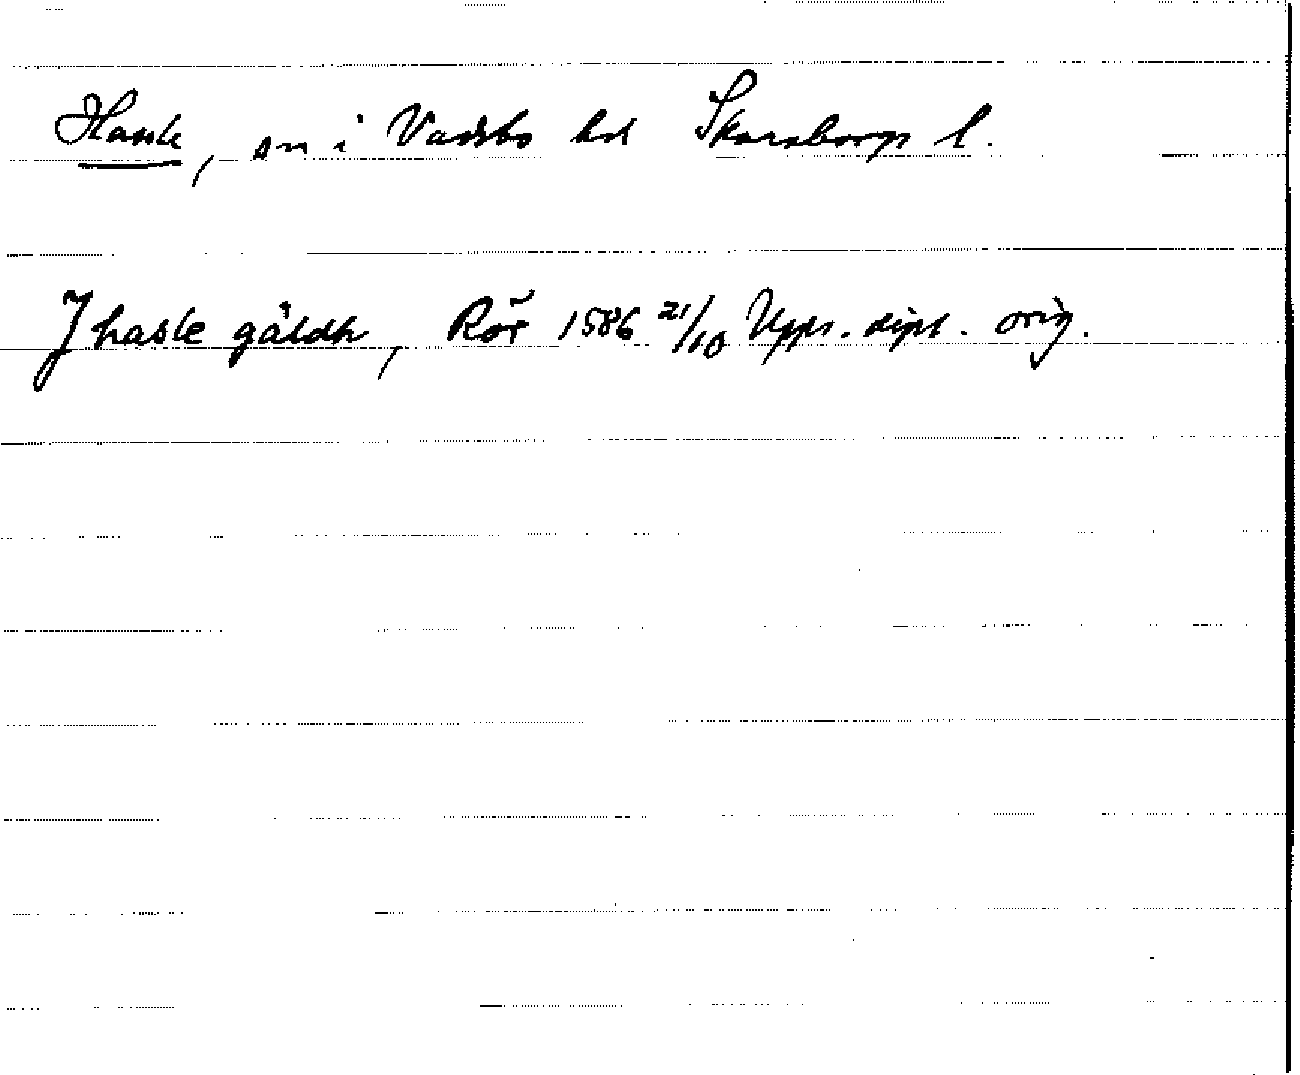 Hassle, sn i Vadsbo hd Skaraborgs l.
J hasle gäldh, Rör 1586 21/10 Upps. dipl. orig.